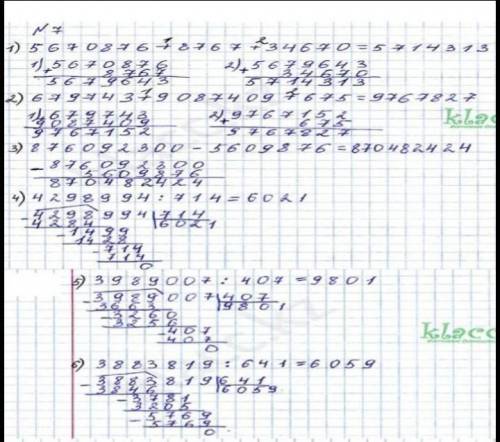 №7
1) 5670876 + 8767 + 34670 = 5714313
1) 5670876 2) 5679643
+ 8767 + 34670
5679643 5714313
2) 679743 + 9087409 + 675 = 9767827
1) 679743 2) 9767152
9087409 + 675
9767152 5767827
3) 876092300 - 5609876 = 870482424
- 876092300
5609876
870482424
4) 4298994 : 714 = 6021
- 4298994 | 714
4284 6021
- 1499
1428
- 714
714
0
5) 3989007 : 407 = 9801
- 3989007 | 407
3663 9801
- 3260
3256
- 407
407
0
6) 3883819 : 641 = 6059
- 3883819 | 641
3846 6059
- 3781
3205
- 5769
5769
0